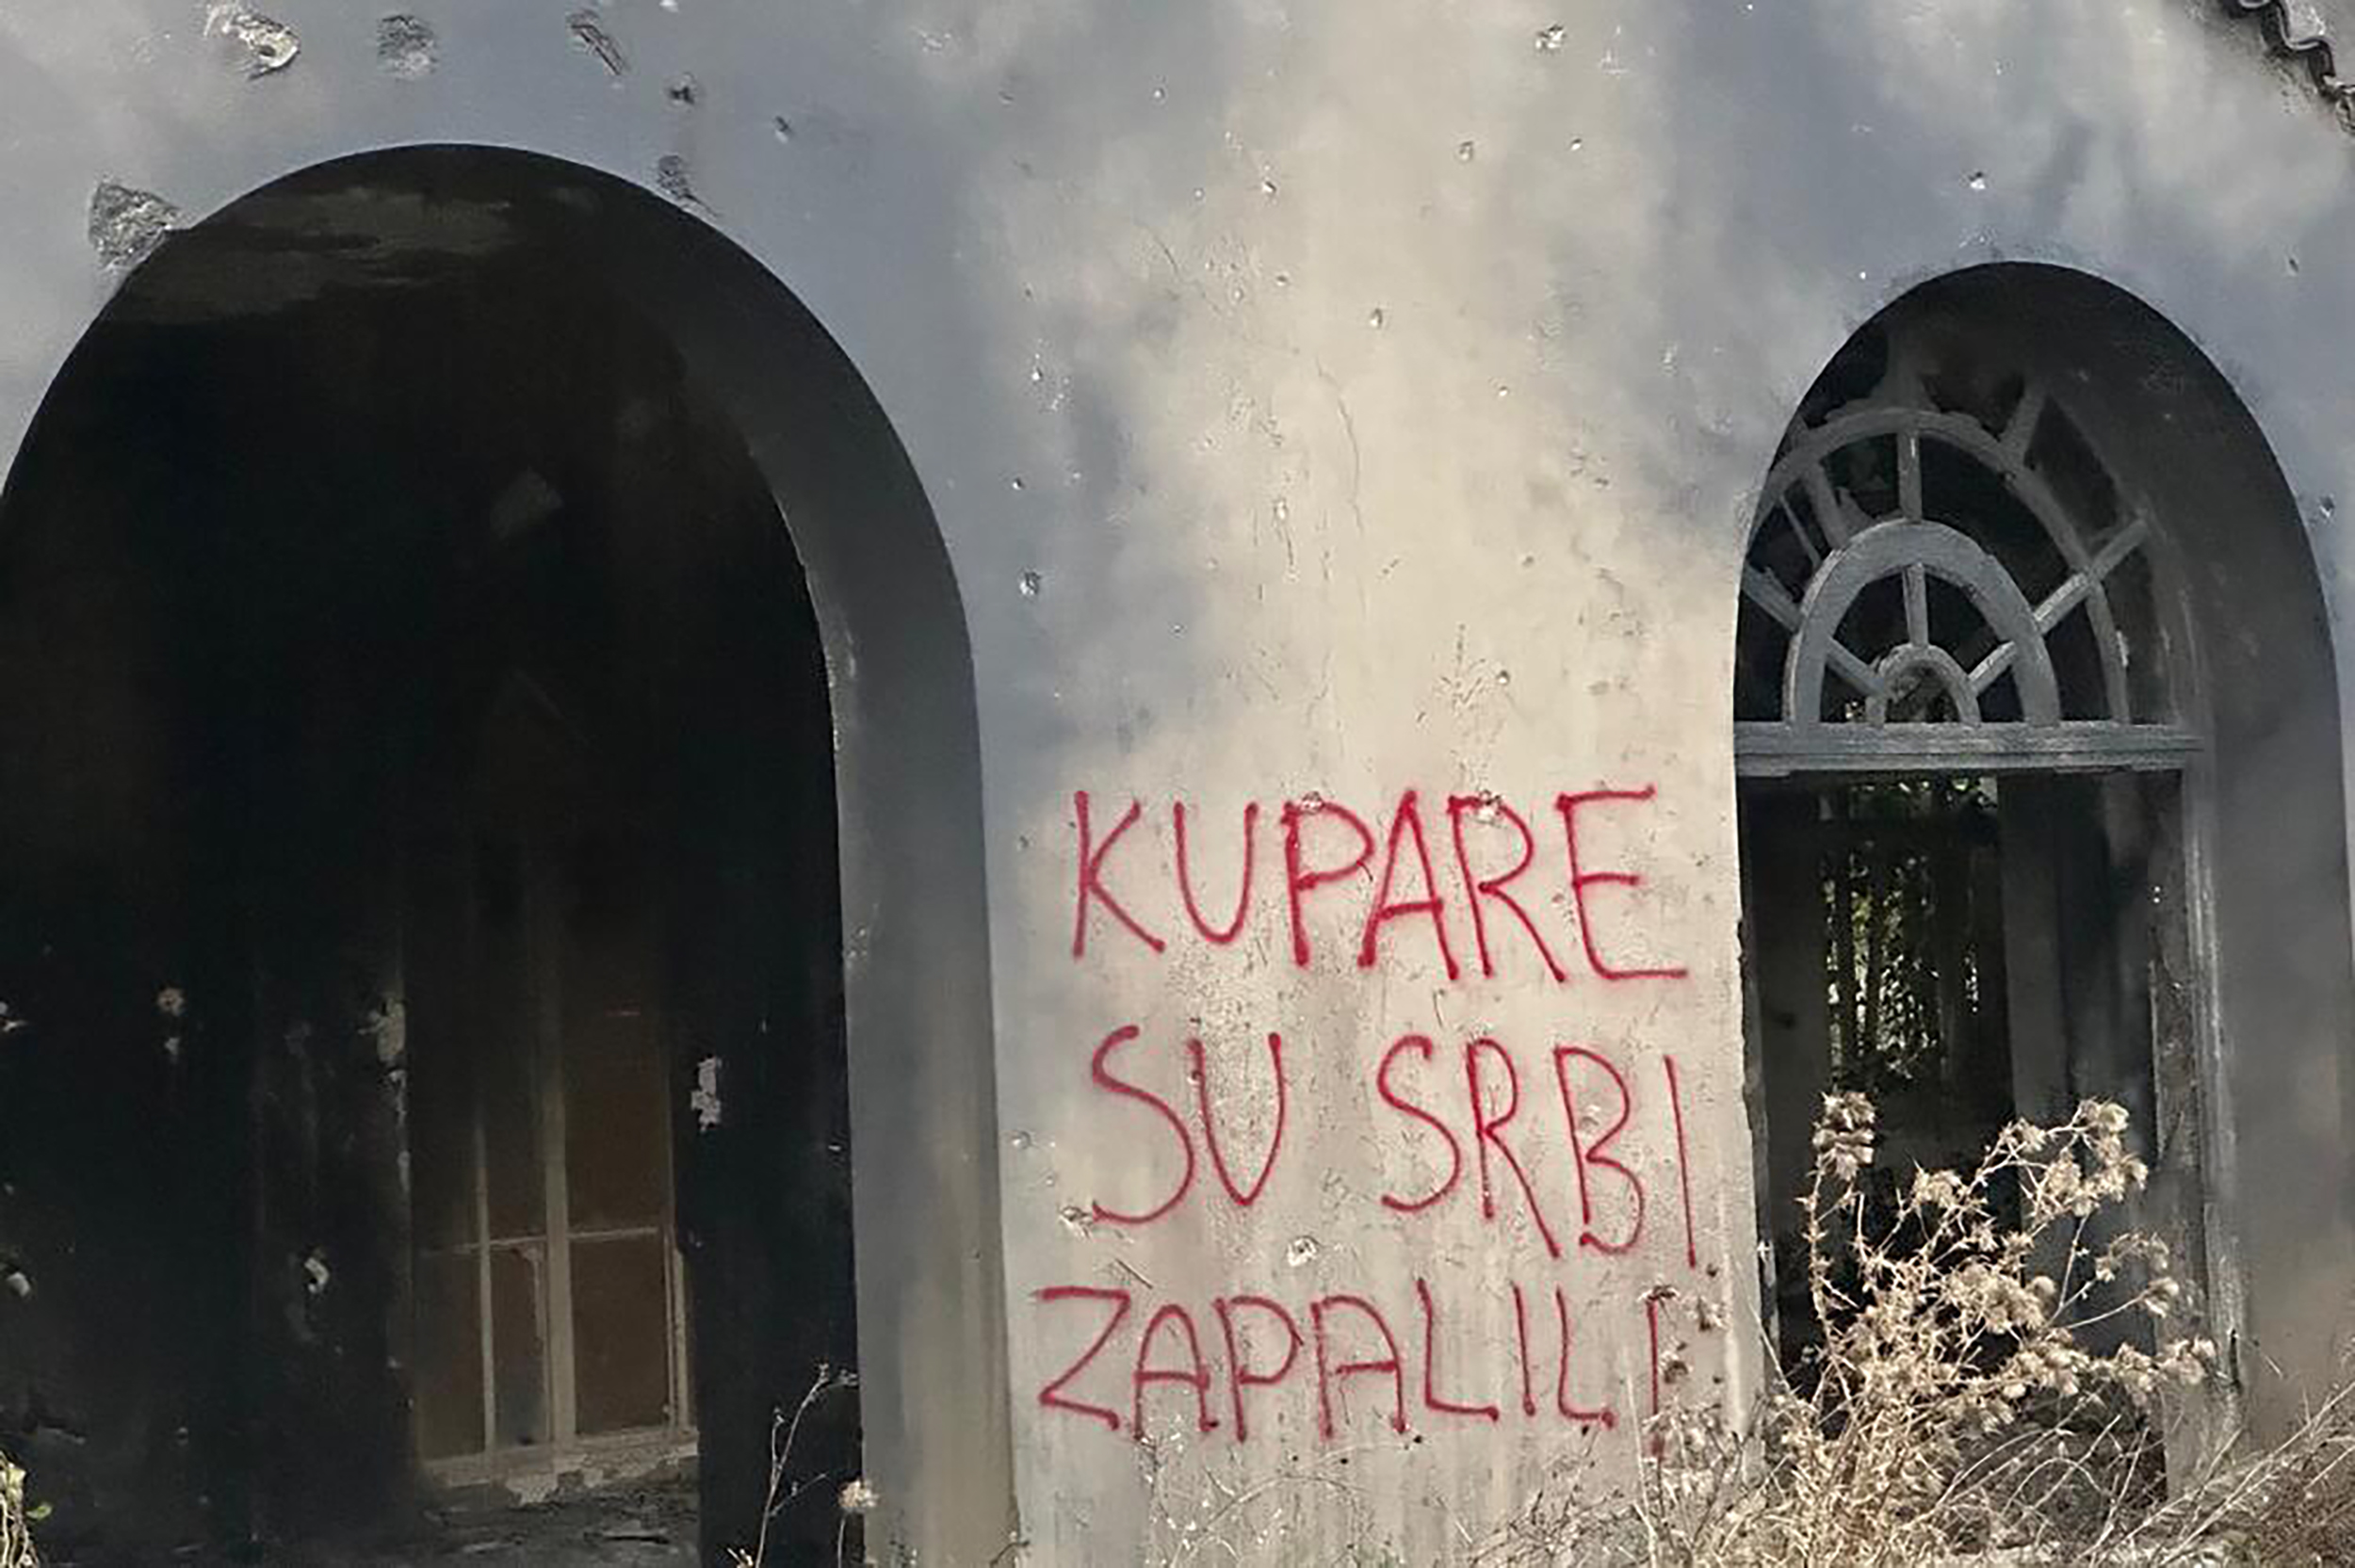 KUPARE
SU SRBI
ZAPALILI